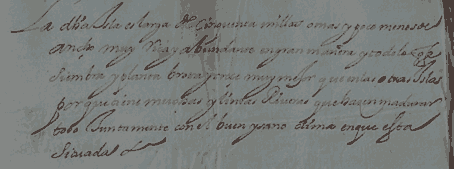 La dha Isla es larga de Cinquenta millas o mas y poco menos de
ancho muy Rica y abundante en gran manera y todo lo que se
siembra y planta en ella crece muy mejor que en las otras Islas
por que tiene muchas y lindas Riveras que hacen madurar
todo Juntamente con el buen y sano clima en que esta
Situada